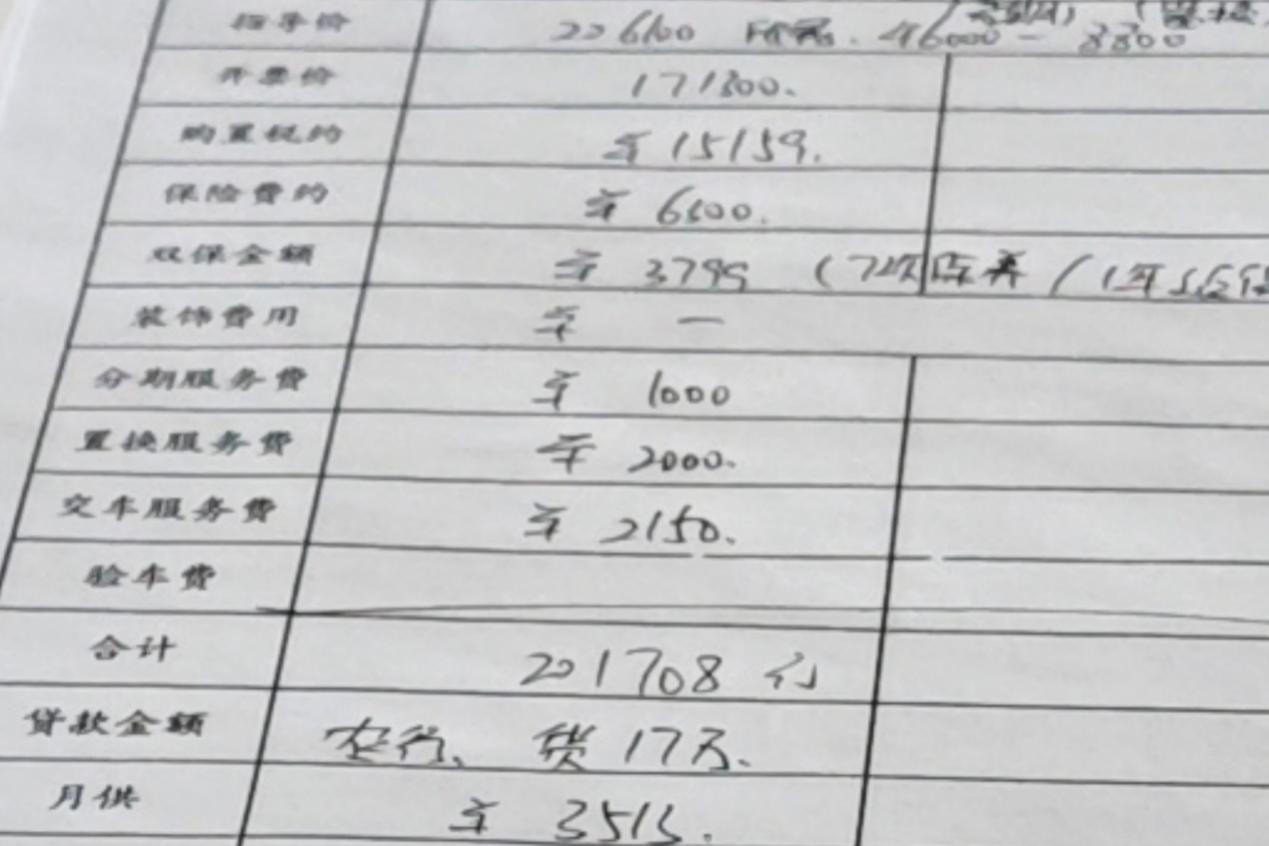 指导价 226100 46000 - 8800
开票价 171300.
购置税约 ¥15159.
保险费约 ¥ 6300.
双保金额 ¥ 3799 (7次保养 / 1年
装饰费用 ¥ 一
分期服务费 ¥ 1000
置换服务费 ¥ 2000.
交车服务费 ¥ 2150.
验车费
合计 201708 元
贷款金额 农行、贷17万.
月供 ¥ 3513.